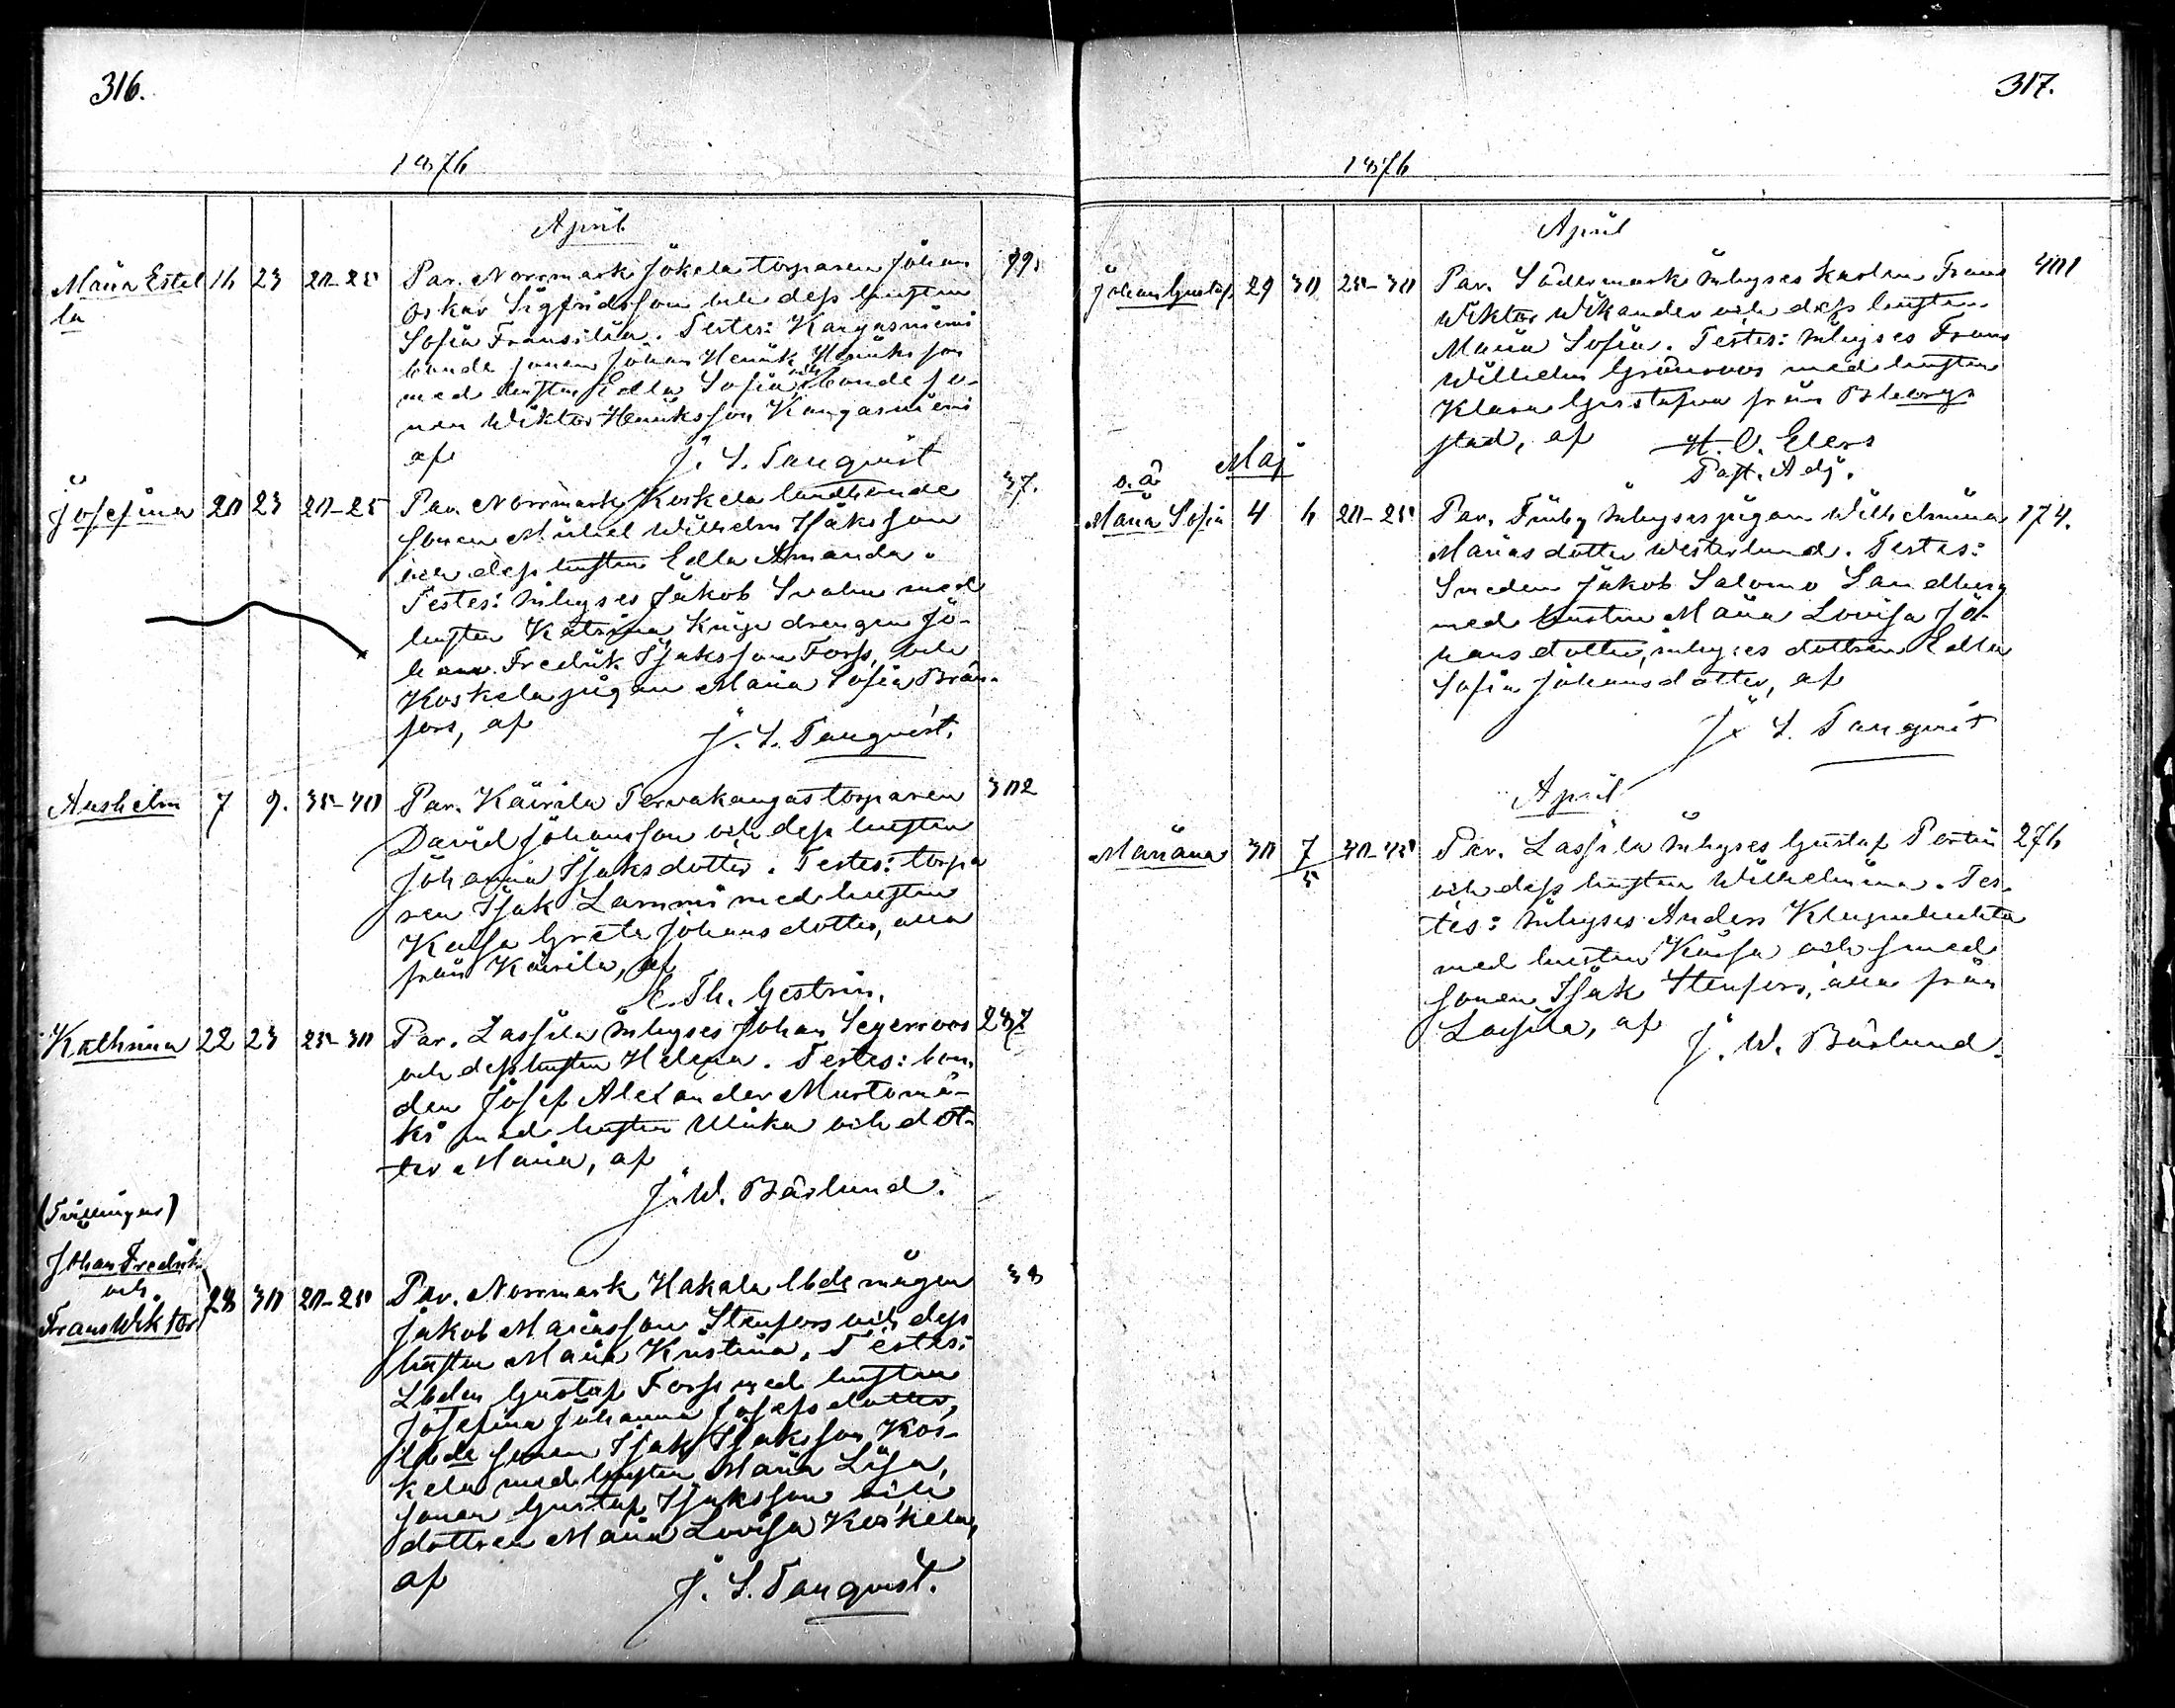 316.
1876
April
Maria Estel
la
16 23 20-25
Par. Norrmark Jokela torparen Johan
Oskar Sigfridsson och dess hustru
Sofia Fransilia. Testes: Kangasniemi
bonde sonen Johan Henrik Henriksson
med hustru Edla Sofia, och bonde so-
nen Wiktor Henriksson Kangasniemi
af J. S. Tanquist
99.
Josefina 20 23 20-25
Par. Norrmark Koskela landbonde
sonen Mickel Wilhelm Isaksson
och dess hustru Edla Amanda.
Testes: Inhyses Jakob Svahn med
hustru Katrina, Knije drengen Jo-
han Fredrik Isaksson Forss, och
Koskela pigan Maria Sofia Brän-
fors, af
J. S. Tanquist.
37.
Anshelm 7 9. 35-40
Par. Käirila Tervakangas torparen
David Johansson och dess hustru
Johanna Isaksdotter. Testes: torpa
ren Isak Lammi med hustru
Kajsa Greta Johansdotter, alla
från Käirila, af
K. Th. Gestrin.
302
Kathrina 22 23 25-30
Par. Lassila Inhyses Johan Segerroos
och dess hustru Helena. Testes: bon-
den Josef Alexander Mustomä-
ki med hustru Ulrika och dot-
ter Maria, af
J. W. Bäslund.
287
(Tvillingar)
Johan Fredrik
och
Frans Wiktor
28 30 20-25
Par. Norrmark Hakala lbde mågen
Jakob Mariasson Stenfors och dess
hustru Maria Kristina. Testes:
Lbden Gustaf Forss med hustru
Josefina Johanna Josefsdotter,
lbde sonen Isak Isaksson Kos-
kela med hustru Maria Lisa,
sonen Gustaf Isaksson och
dottren Maria Lovisa Koskela,
af J. S. Tanquist.
38
317.
1876
April
Johan Gustaf 29 30 25-30
Par. Södermark Inhyses karlen Frans
Wiktor Wikander och dess hustru
Maria Sofia. Testes: Inhyses Frans
Wilhelm Grönroos med hustru
Klara Gustafva från Bborgs
stad, af H. O. Elers
Past. Adj.
401
o.ä. Maj
Maria Sofia 4 6 20-25
Par. Finby Inhyses pigan Wilhelmina
Mariasdotter Westerlund. Testes:
Smeden Jakob Salomo Sandberg
med hustru Maria Lovisa Jo-
hansdotter, inhyses dottren Edla
Sofia Johansdotter, af
J. S. Tanquist
174.
April
Mariana 30 7/5 40-45
Par. Lassila Inhyses Gustaf Pertin
och dess hustru Wilhelmina. Tes-
tes: Inhyses Anders
med hustru Kajsa och smed
sonen Isak Stenfors, alla från
Lassila, af
J. W. Bäslund.
276